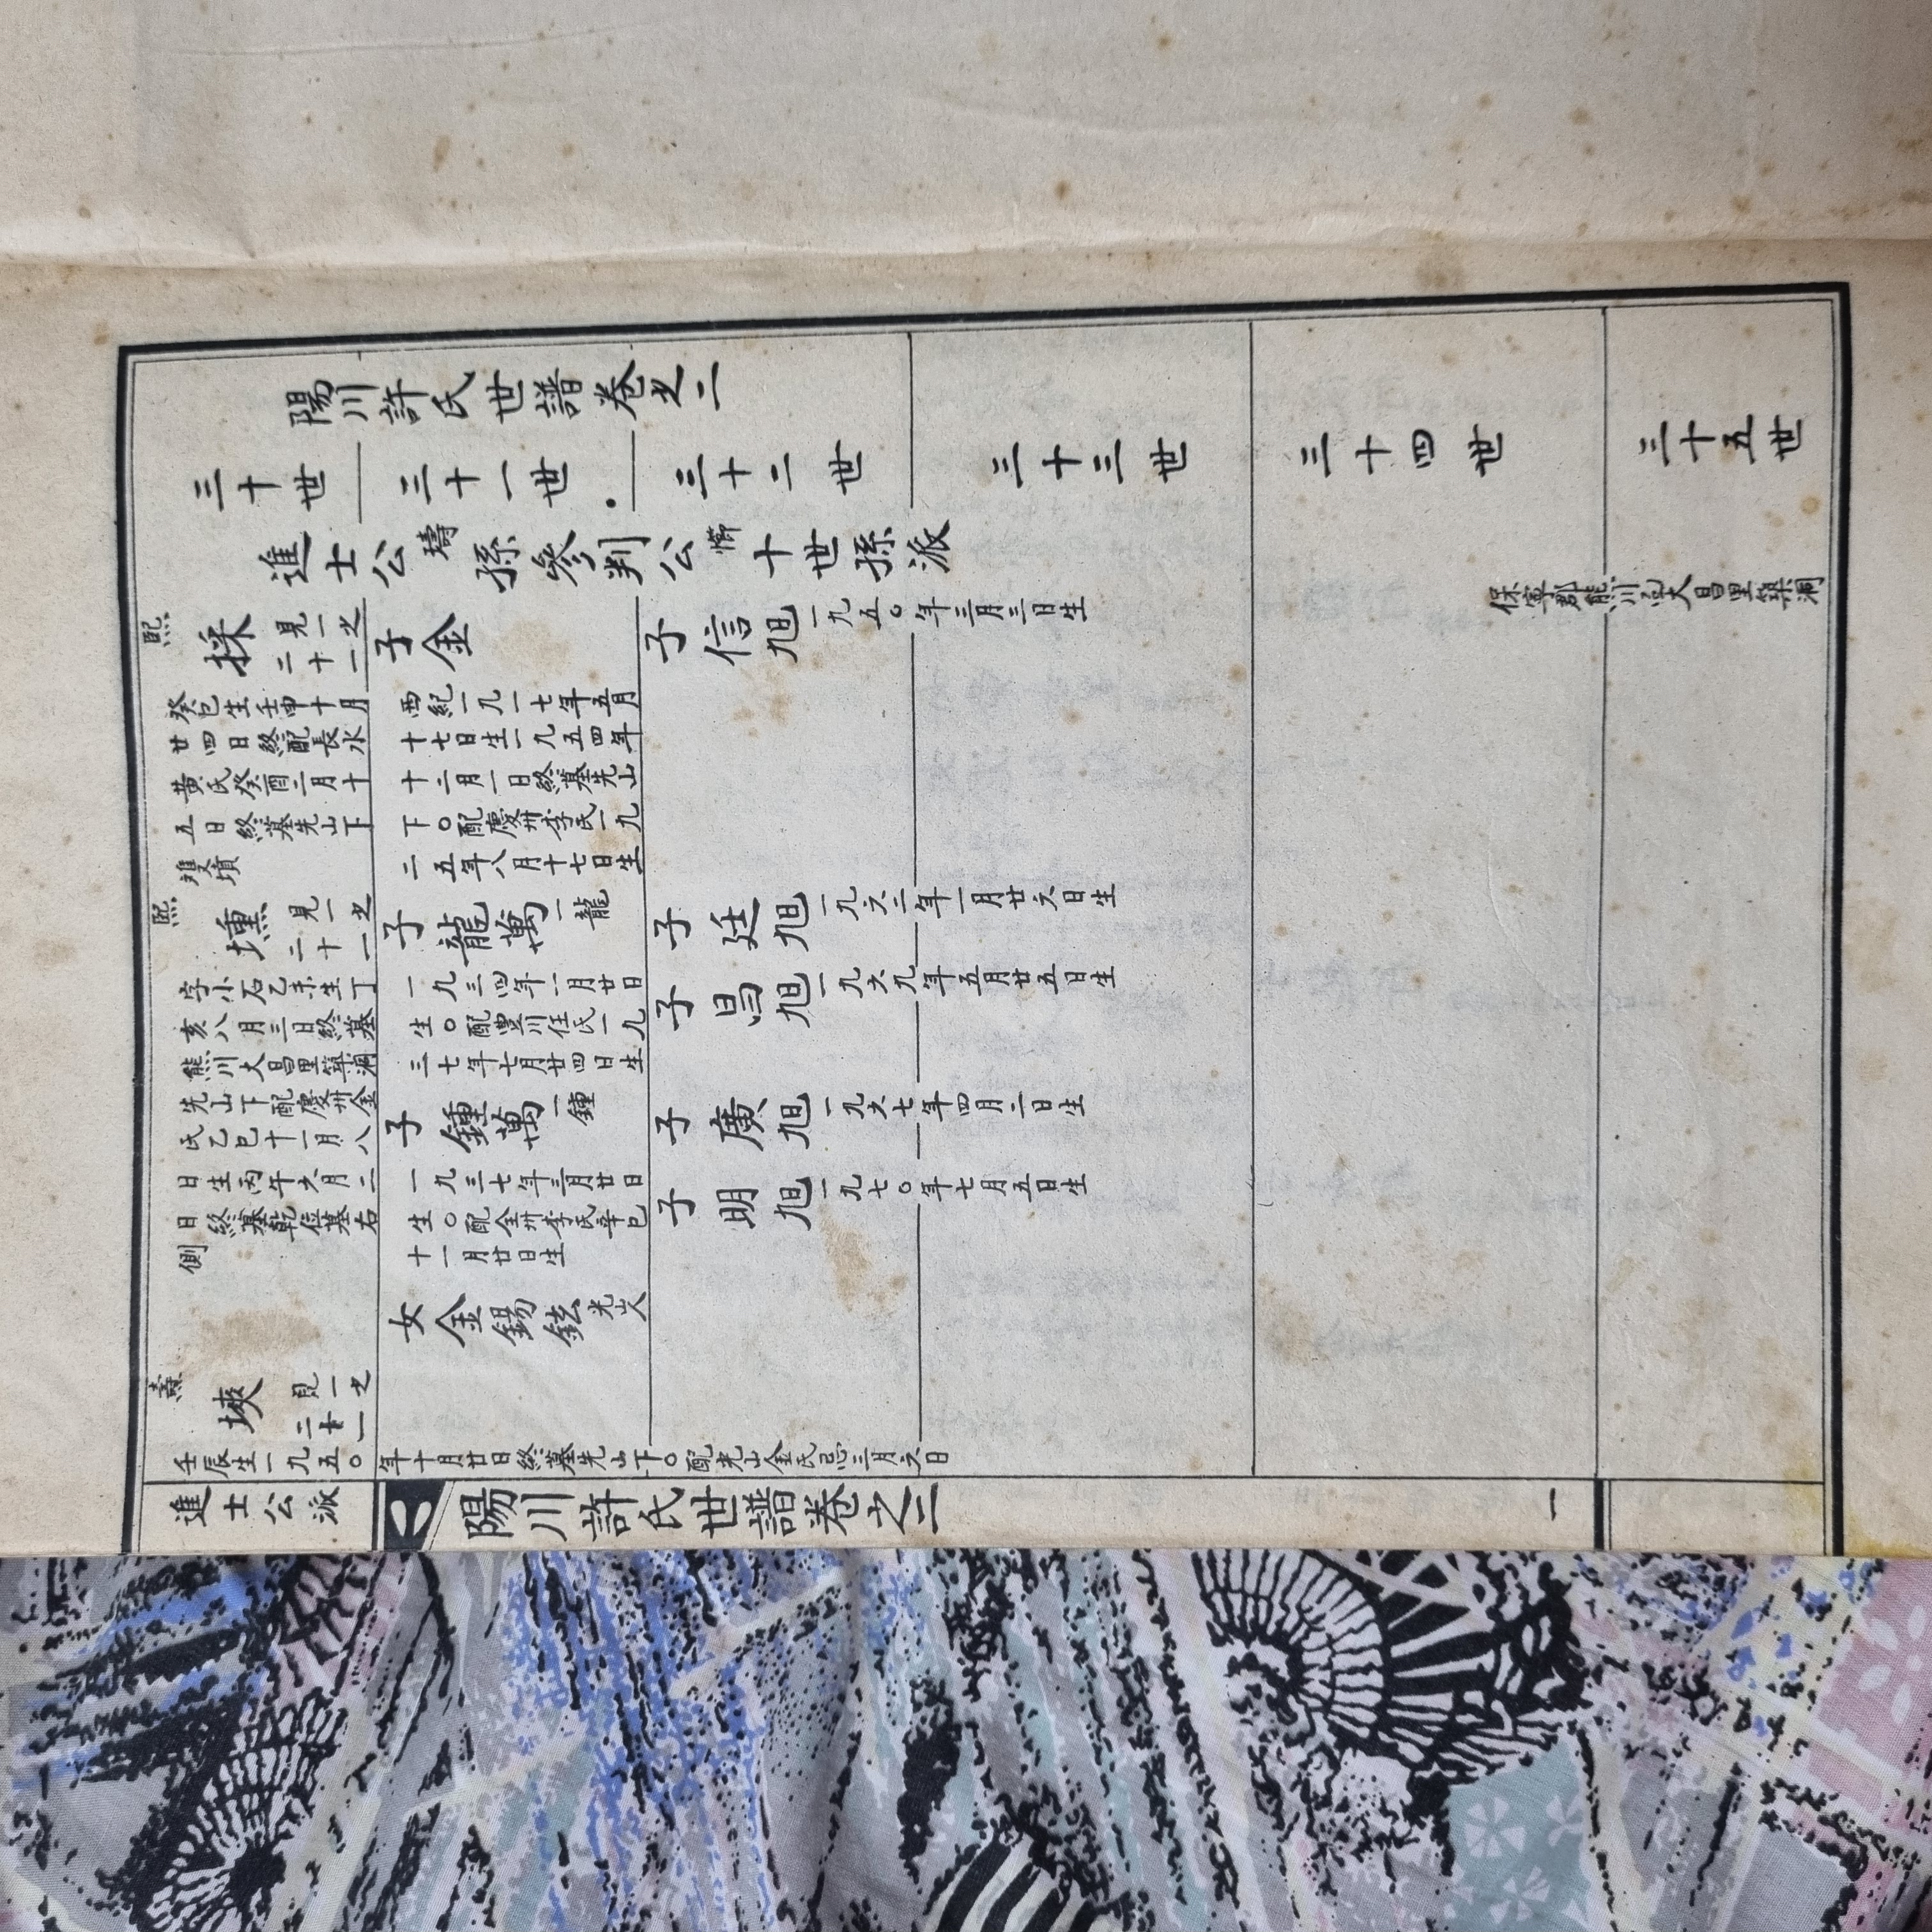 陽川許氏世譜卷之二
三十世
三十一世
三十二世
三十三世
三十四世
三十五世
進士公壔孫參判公 十世孫派
保寧郡熊川面大昌里築洞
熙
採
見一之
二十一
癸巳生壬申十月
廿四日終配長水
黃氏癸酉二月十
五日終墓先山下
雙墳
子金
西紀一九一七年五月
十七日生一九五四年
十二月一日終墓先山
下○配慶州李氏一九
二五年八月十七日生
子信旭
一九五○年三月三日生
熙
壎
見一之
二十一
字小石乙未生丁
亥八月三日終墓
熊川大昌里築洞
先山下配慶州金
氏乙巳十一月八
日生丙午六月二
日終墓乾位墓右
側
子龍萬
一龍
一九三四年一月廿日
生○配豊川任氏一九
三七年七月廿四日生
子廷旭
一九六二年一月廿六日生
子昌旭
一九六九年五月廿五日生
子鍾萬
一鍾
一九三七年三月廿日
生○配全州李氏辛巳
十一月廿日生
子廣旭
一九六七年四月二日生
子明旭
一九七○年七月五日生
女金錫鉉
光山人
熹
埉
見一之
二十一
壬辰生一九五○年十月廿日終墓先山下○配光山金氏忌三月六日
進士公派
陽川許氏世譜卷之二
一